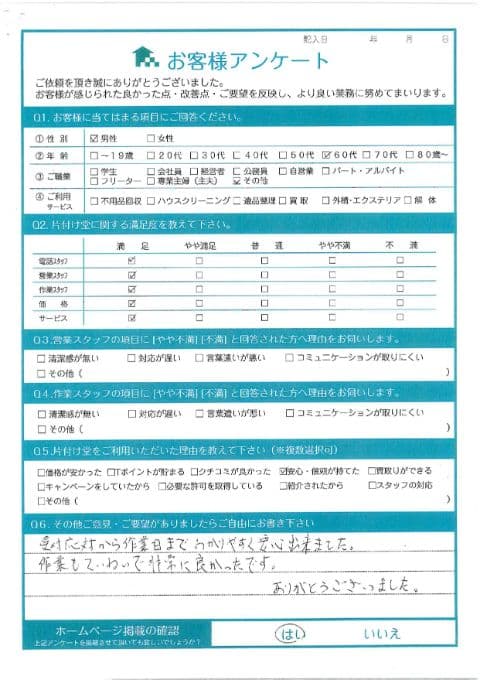 記入日　年　月　日
お客様アンケート
ご依頼を頂き誠にありがとうございました。
お客様が感じられた良かった点・改善点・ご要望を反映し、より良い業務に努めてまいります。
Q1. お客様に当てはまる項目にご回答ください。
① 性 別 ☑男性 □女性
② 年 齢 □～19歳 □20代 □30代 □40代 □50代 ☑60代 □70代 □80歳～
③ ご職業 □学生 □会社員 □経営者 □公務員 □自営業 □パート・アルバイト
□フリーター □専業主婦（主夫） ☑その他
④ ご利用サービス □不用品回収 □ハウスクリーニング □遺品整理 □買取 □外構・エクステリア □解体
Q2. 片付け堂に関する満足度を教えて下さい。
満 足 やや満足 普 通 やや不満 不 満
電話スタッフ ☑ □ □ □ □
営業スタッフ ☑ □ □ □ □
作業スタッフ ☑ □ □ □ □
価 格 ☑ □ □ □ □
サービス ☑ □ □ □ □
Q3.営業スタッフの項目に [やや不満] [不満] と回答された方へ理由をお伺いします。
□清潔感が無い □対応が遅い □言葉遣いが悪い □コミュニケーションが取りにくい
□その他（
Q4.作業スタッフの項目に [やや不満] [不満] と回答された方へ理由をお伺いします。
□清潔感が無い □対応が遅い □言葉遣いが悪い □コミュニケーションが取りにくい
□その他（
Q5.片付け堂をご利用いただいた理由を教えて下さい（※複数選択可）
□価格が安かった □Tポイントが貯まる □クチコミが良かった ☑安心・信頼が持てた □買取りができる
□キャンペーンをしていたから □必要な許可を取得している □紹介されたから □スタッフの対応
□その他（
Q6. その他ご意見・ご要望がありましたらご自由にお書き下さい
受け応対から作業日まで わかりやすく安心出来ました。
作業もていねいで非常に良かったです。
ありがとうございました。
ホームページ掲載の確認 はい いいえ
上記アンケートを掲載させて頂いても宜しいでしょうか？